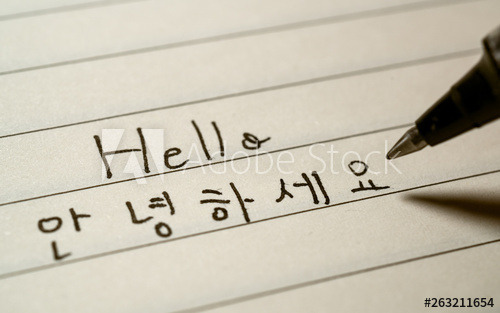 Hello
안녕하세요
Adobe Stock
#263211654